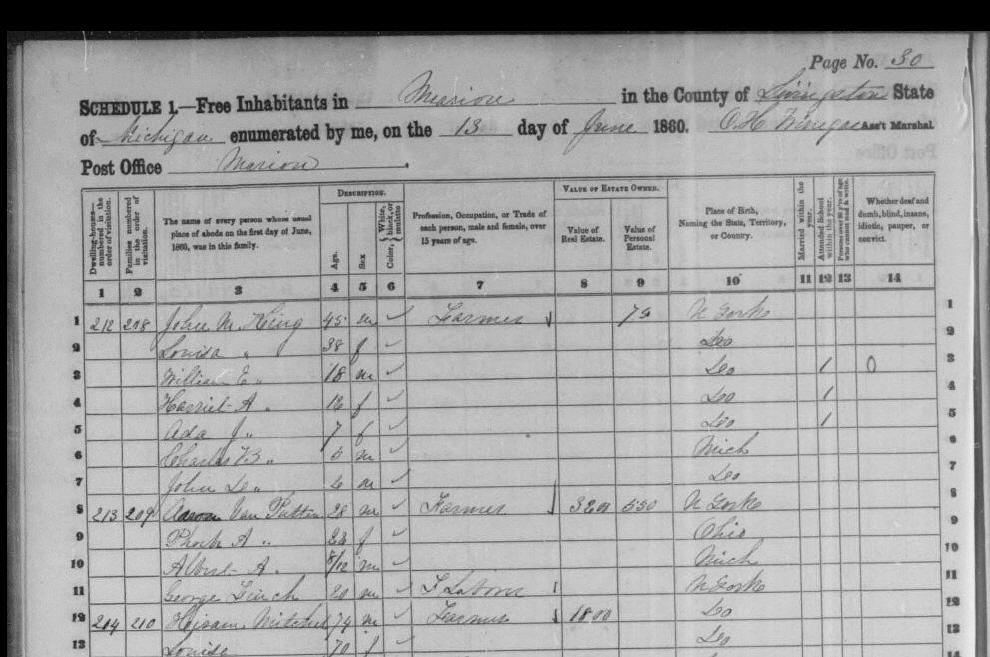 Page No. 30
SCHEDULE 1.—Free Inhabitants in Marion in the County of Livingston State
of Michigan enumerated by me, on the 13 day of June 1860. Ass't Marshal
Post Office Marion.
Dwelling-houses— numbered in the order of visitation. Families numbered in the order of visitation. The name of every person whose usual place of abode on the first day of June, 1860, was in this family. DESCRIPTION. Age. Sex Color, White, black, or mulatto Profession, Occupation, or Trade of each person, male and female, over 15 years of age. VALUE OF ESTATE OWNED. Value of Real Estate. Value of Personal Estate. Place of Birth, Naming the State, Territory, or Country. Married within the year. Attended School within the year. Persons over 20 y'rs of age who cannot read & write. Whether deaf and dumb, blind, insane, idiotic, pauper, or convict.
1 2 3 4 5 6 7 8 9 10 11 12 13 14
1 212 208 John M. King 45 m ✓ Farmer N York 1
2 Louisa " 38 f ✓ Do 2
3 William E " 18 m ✓ Do 1 0 3
4 Harriet A " f ✓ Do 1 4
5 Ada J " 7 f ✓ Do 1 5
6 Charles B " 5 m ✓ Mich 6
7 John " m ✓ Do 7
8 213 209 Aaron Van Patten 28 m ✓ Farmer 550 N York 8
9 Phoeb A " f ✓ Ohio 9
10 Albert A. m ✓ Mich 10
11 George Finch 20 m ✓ F Laborer N York 11
12 214 210 Hiram Mitchel 74 m ✓ Farmer 1800 Do 12
13 Louisa 70 f ✓ Do 13
14